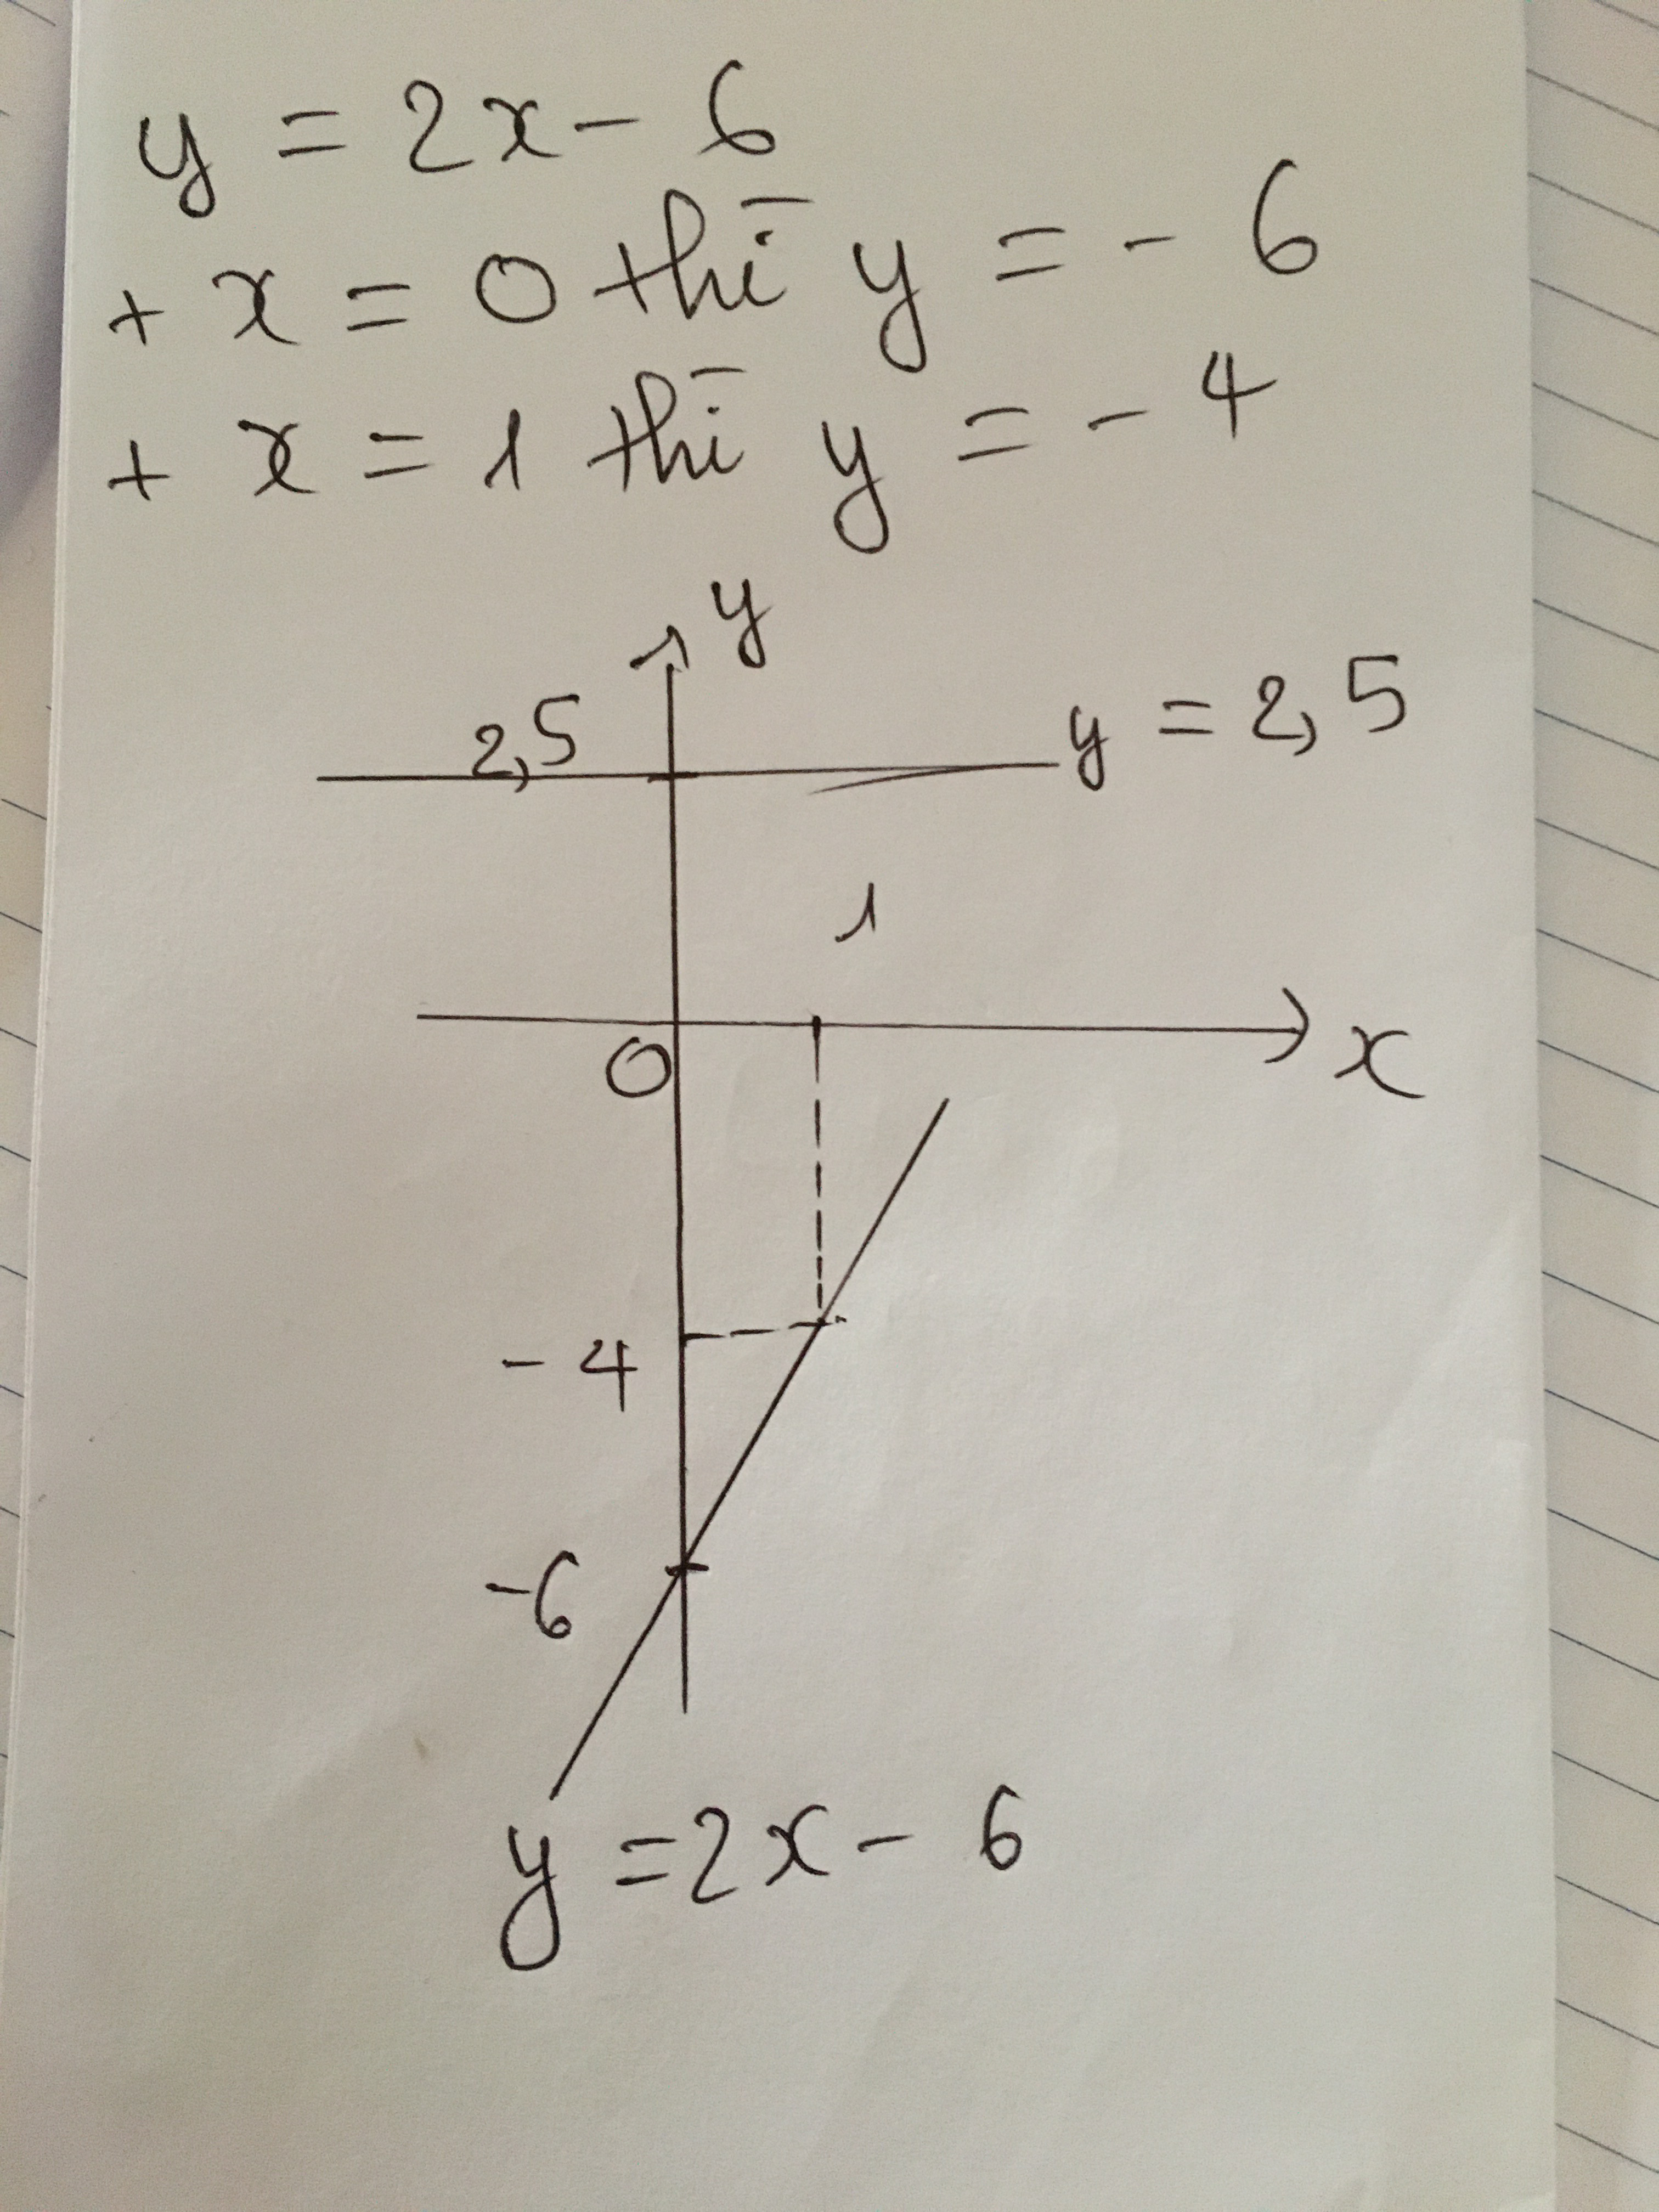 y = 2x - 6
+ x = 0 thì y = - 6
+ x = 1 thì y = - 4
y
2,5
y = 2,5
1
0
x
- 4
-6
y = 2x - 6